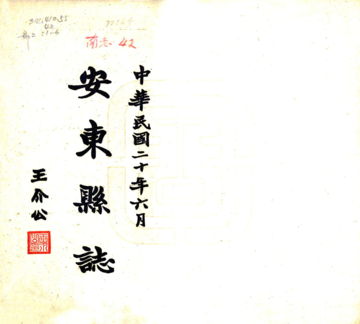 中華民國二十年六月
安東縣誌
王介公
南志 42